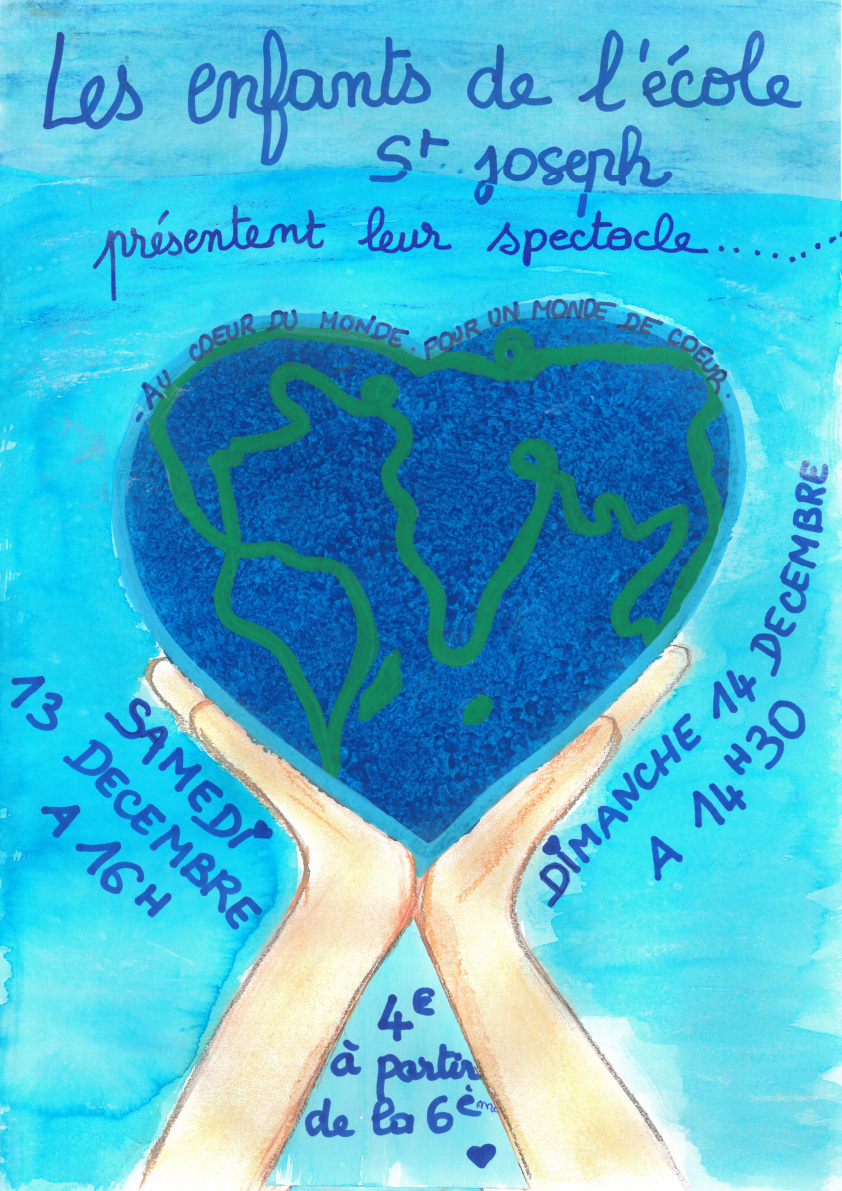 Les enfants de l'école
St joseph
présentent leur spectacle.........
- AU COEUR DU MONDE. POUR UN MONDE DE COEUR.
SAMEDI
13 DECEMBRE
A 16H
DIMANCHE 14 DECEMBRE
A 14H30
4E
à partir
de la 6ème